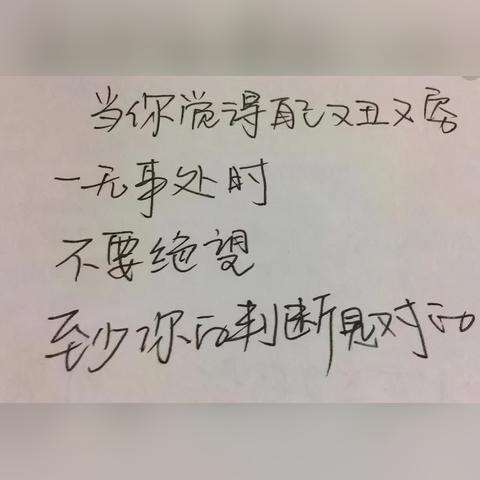 当你觉得自己又丑又穷
一无事处时
不要绝望
至少你的判断是对的